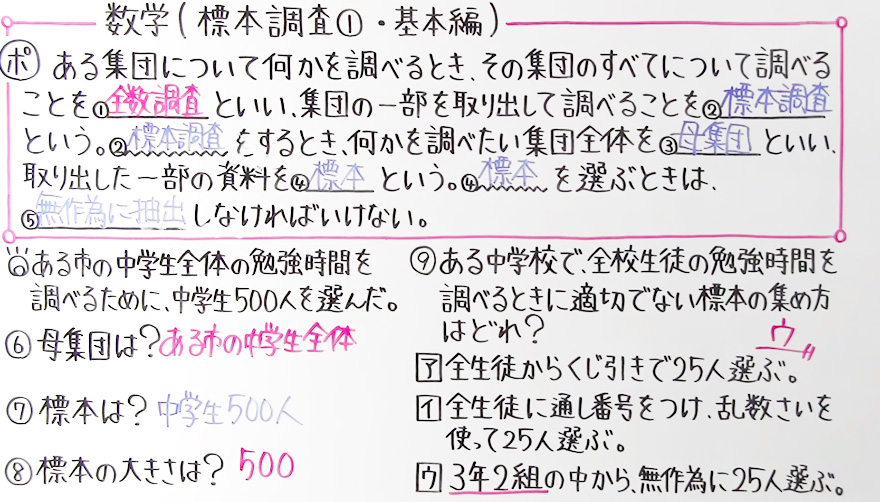 数学(標本調査①・基本編)
ポ ある集団について何かを調べるとき、その集団のすべてについて調べる
ことを①全数調査といい、集団の一部を取り出して調べることを②標本調査
という。②標本調査をするとき、何かを調べたい集団全体を③母集団といい、
取り出した一部の資料を④標本という。④標本を選ぶときは、
⑤無作為に抽出しなければいけない。
ある市の中学生全体の勉強時間を
調べるために、中学生500人を選んだ。
⑥母集団は?ある市の中学生全体
⑦標本は?中学生500人
⑧標本の大きさは?500
⑨ある中学校で、全校生徒の勉強時間を
調べるときに適切でない標本の集め方
はどれ? ウ
ア 全生徒からくじ引きで25人選ぶ。
イ 全生徒に通し番号をつけ、乱数さいを
使って25人選ぶ。
ウ 3年2組の中から、無作為に25人選ぶ。